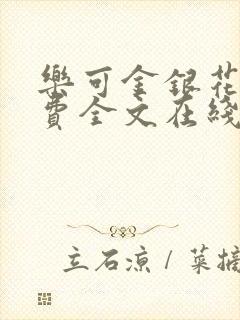 樂可金銀花
費全文在綫
立石凉 / 菜摘